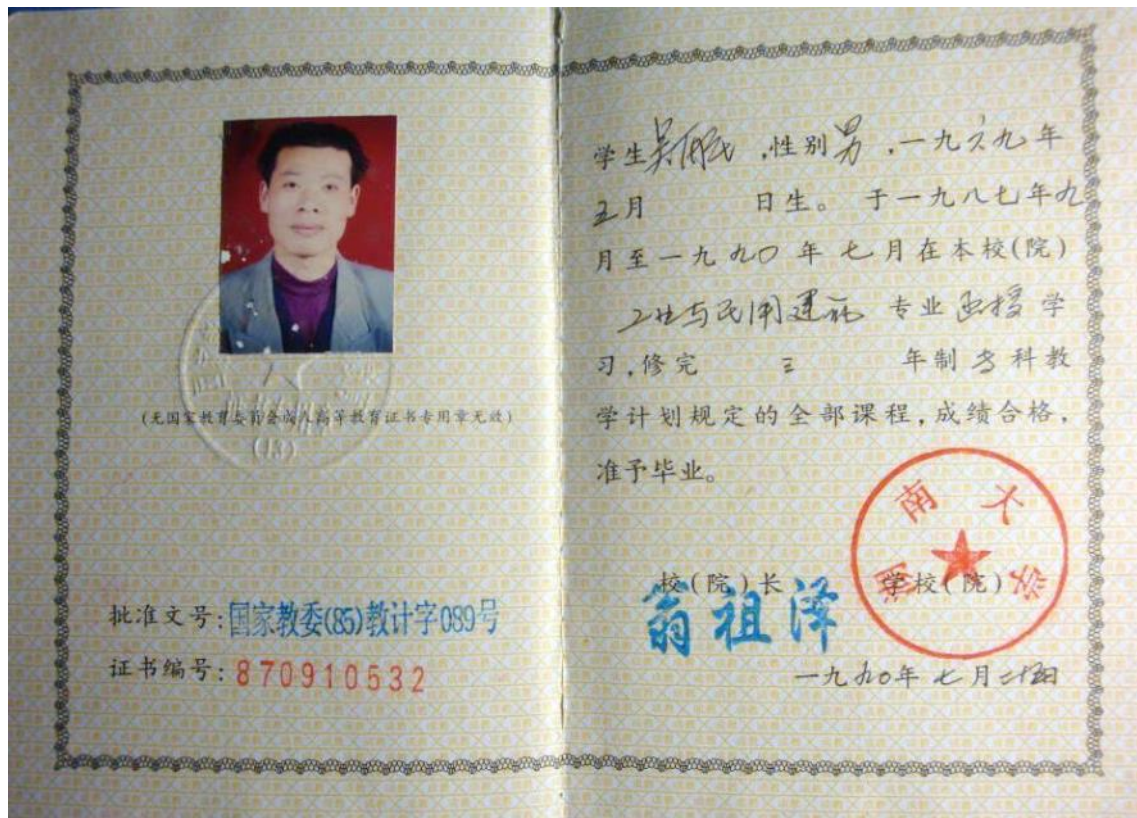 (无国家教育委员会成人高等教育证书专用章无效)
(13)
批准文号:国家教委(85)教计字089号
证书编号:870910532
学生吴 ,性别男,一九六九年
五月 日生。于一九八七年九
月至一九九〇年七月在本校(院)
工业与民用建筑 专业函授学
习,修完 三 年制专科教
学计划规定的全部课程,成绩合格,
准予毕业。
校(院)长 学校(院)
翁祖泽
湖南大学
一九九〇年七月二十五日